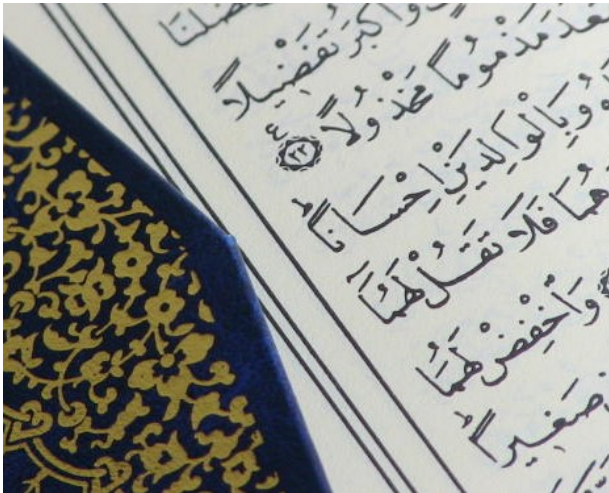 ضَّلْنَا
وَأَكْبَرُ تَفْضِيلًا
عُدَ مَذْمُومًا مَخْذُولًا ٢٢
وَبِالْوَالِدَيْنِ إِحْسَانًا
هُمَا فَلَا تَقُلْ لَهُمَا
وَاخْفِضْ لَهُمَا
صَغِيرًا